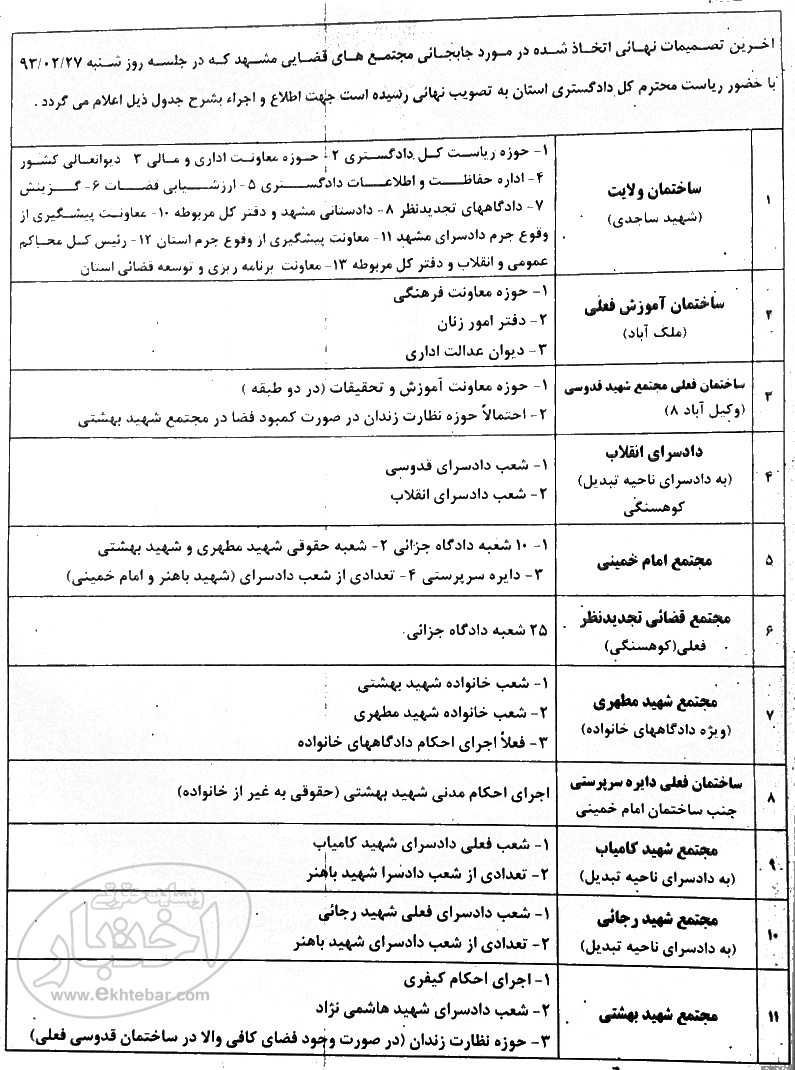 اخرین تصمیمات نهائی اتخاذ شده در مورد جابجائی مجتمع های قضایی مشهد که در جلسه روز شنبه ۹۳/۰۲/۲۷
با حضور ریاست محترم کل دادگستری استان به تصویب نهائی رسیده است جهت اطلاع و اجراء بشرح جدول ذیل اعلام می گردد .
۱
ساختمان ولایت
(شهید ساجدی)
۱- حوزه ریاست کل دادگستری ۲- حوزه معاونت اداری و مالی ۳- دیوانعالی کشور
۴- اداره حفاظت و اطلاعات دادگستری ۵- ارزشیابی قضات ۶- گزینش
۷- دادگاههای تجدیدنظر ۸- دادستانی مشهد و دفتر کل مربوطه ۱۰- معاونت پیشگیری از
وقوع جرم دادسرای مشهد ۱۱- معاونت پیشگیری از وقوع جرم استان ۱۲- رئیس کل محاکم
عمومی و انقلاب و دفتر کل مربوطه ۱۳- معاونت برنامه ریزی و توسعه قضائی استان
۲
ساختمان آموزش فعلی
(ملک آباد)
۱- حوزه معاونت فرهنگی
۲- دفتر امور زنان
۳- دیوان عدالت اداری
۳
ساختمان فعلی مجتمع شهید قدوسی
(وکیل آباد ۸)
۱- حوزه معاونت آموزش و تحقیقات (در دو طبقه )
۲- احتمالاً حوزه نظارت زندان در صورت کمبود فضا در مجتمع شهید بهشتی
۴
دادسرای انقلاب
(به دادسرای ناحیه تبدیل)
کوهسنگی
۱- شعب دادسرای قدوسی
۲- شعب دادسرای انقلاب
۵
مجتمع امام خمینی
۱- ۱۰ شعبه دادگاه جزائی ۲- شعبه حقوقی شهید مطهری و شهید بهشتی
۳- دایره سرپرستی ۴- تعدادی از شعب دادسرای (شهید باهنر و امام خمینی)
۶
مجتمع قضائی تجدیدنظر
فعلی(کوهسنگی)
۲۵ شعبه دادگاه جزائی.
۷
مجتمع شهید مطهری
(ویژه دادگاههای خانواده)
۱- شعب خانواده شهید بهشتی
۲- شعب خانواده شهید مطهری
۳- فعلاً اجرای احکام دادگاههای خانواده
۸
ساختمان فعلی دایره سرپرستی
جنب ساختمان امام خمینی
اجرای احکام مدنی شهید بهشتی (حقوقی به غیر از خانواده)
۹
مجتمع شهید کامیاب
(به دادسرای ناحیه تبدیل)
۱- شعب فعلی دادسرای شهید کامیاب
۲- تعدادی از شعب دادسرا شهید باهنر
۱۰
مجتمع شهید رجائی
(به دادسرای ناحیه تبدیل)
۱- شعب دادسرای فعلی شهید رجائی
۲- تعدادی از شعب دادسرای شهید باهنر
۱۱
مجتمع شهید بهشتی
۱- اجرای احکام کیفری
۲- شعب دادسرای شهید هاشمی نژاد
۳- حوزه نظارت زندان (در صورت وجود فضای کافی والا در ساختمان قدوسی فعلی)
وبسایت حقوقی
اختبار
www.ekhtebar.com